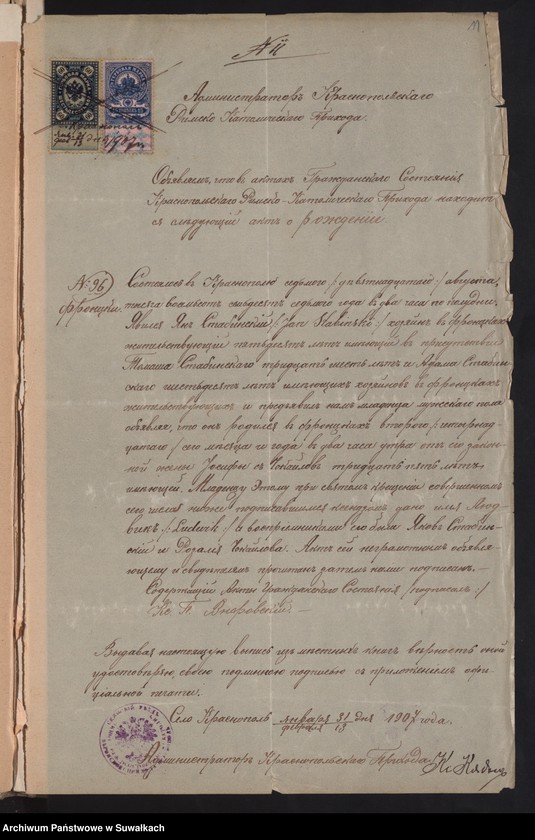 11
№ 11
Администраторъ Краснопольскаго
Римско Католическаго Прихода.
Объявляетъ, что въ актахъ Гражданскаго Состоянія
Краснопольскаго Римско-Католическаго Прихода находит
ся слѣдующій актъ о рожденіи.
№ 96
Фронцки.
Состоялось въ Краснополѣ седьмого /девятнадцатаго/ августа
тысяча восемьсотъ семьдесятъ седьмого года въ два часа по полудни.
Явился Янъ Стабинскій /Jan Stabiński/ хозяинъ въ Фронцкахъ
жительствующій пятьдесятъ лѣтъ имѣющій въ присутствіи
Томаша Стабинскаго тридцать шесть лѣтъ и Адама Стабин
скаго шестьдесятъ лѣтъ имеющихъ хозяевов въ Фронцкахъ
жительствующихъ и предъявилъ намъ младенца мужескаго пола
объявляя, что онъ родился въ Фронцкахъ второго /четырнад
цатаго/ сего мѣсяца и года въ два часа утра отъ его закон
ной жены Іосифы съ тридцать пять лѣтъ
имѣющей. Младенцу этому при святомъ крещеніи совершенномъ
сего числа ниже подписавшимся ксендзомъ дано имя Людо
викъ /Ludwik/ а воспріемниками его были Яковъ Стабин
скій и Розалія Актъ сей неграмотнымъ объявля
ющему и свидѣтелямъ прочитанъ затемъ нами подписанъ. —
Содержащій Акты Гражданскаго Состоянія /подписалъ:/
Кс. П. —
Выдавая настоящую выпись изъ мѣстныхъ книгъ верность оной
удостовѣряю своею подлинною подписью съ приложеніемъ офи
ціальной печати.
Село Краснополь января 31 / февраля 13 дня 1907 года.
Администраторъ Краснопольскаго Прихода Кс
Archiwum Państwowe w Suwałkach